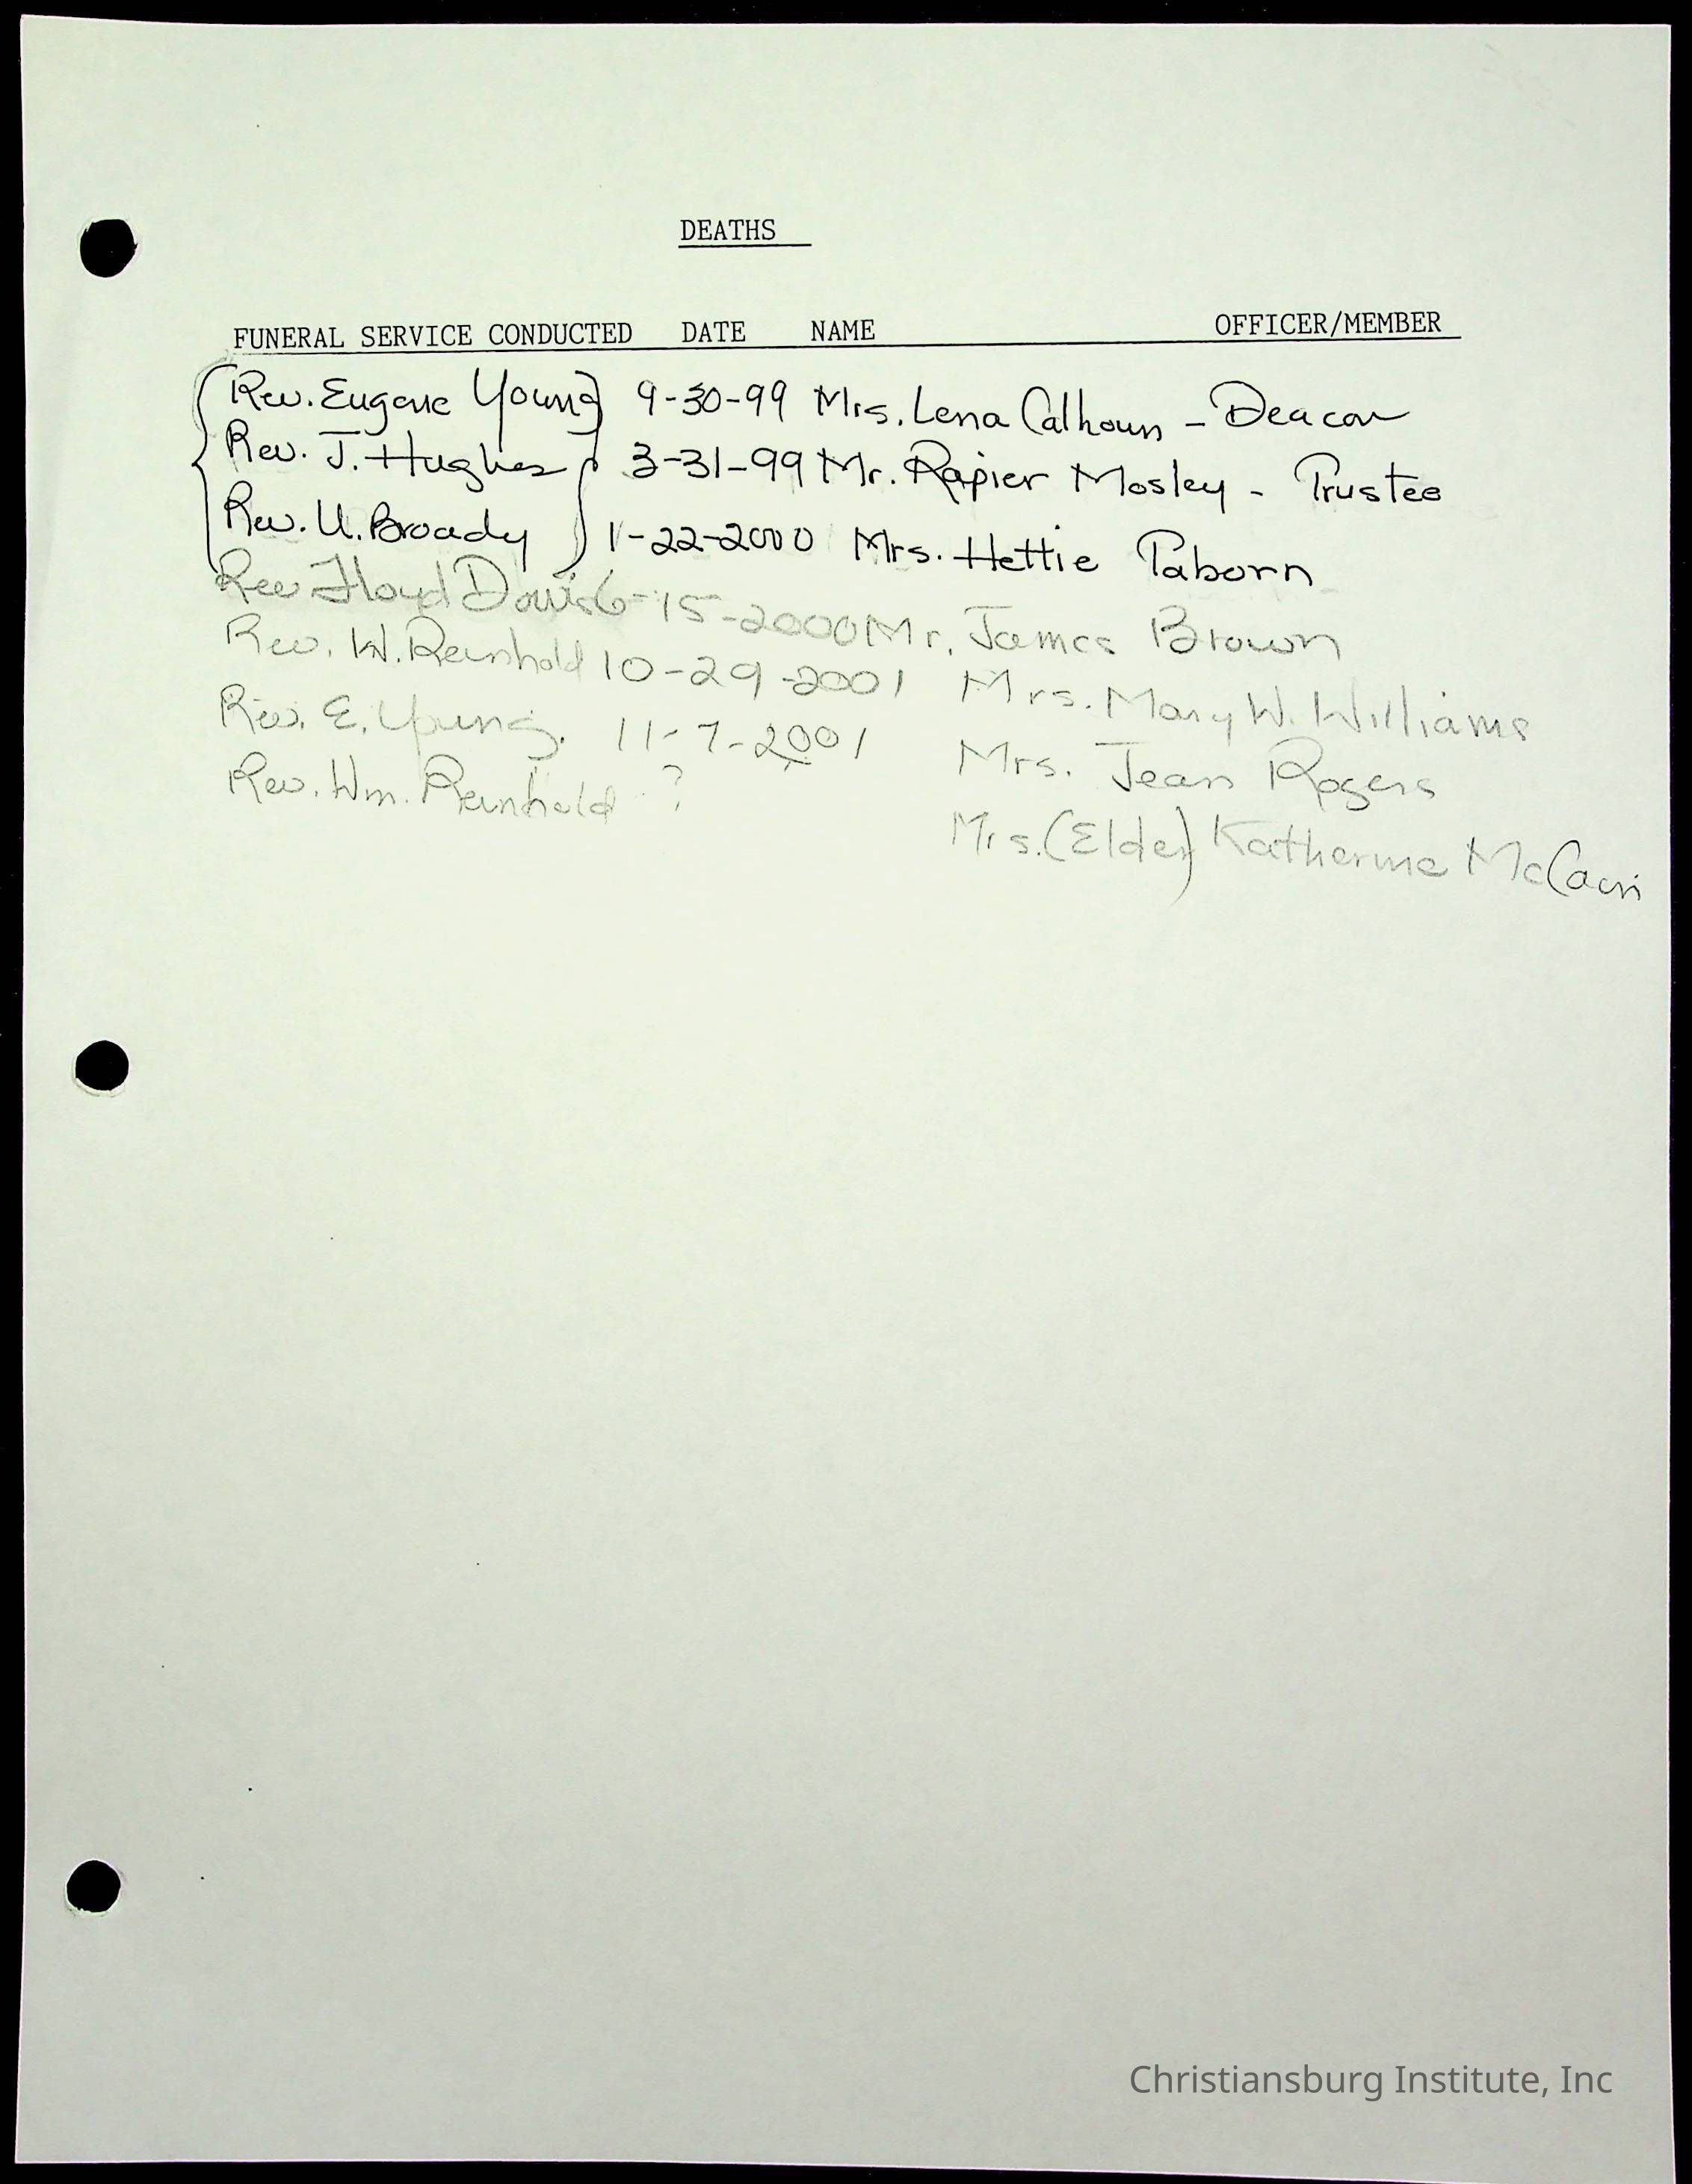 DEATHS
FUNERAL SERVICE CONDUCTED DATE NAME OFFICER/MEMBER
Rev. Eugene Young 9-30-99 Mrs. Lena Calhoun - Deacon
Rev. J. Hughes 3-31-99 Mr. Rapier Mosley - Trustee
Rev. U. Broady 1-22-2000 Mrs. Hettie Paborn
Rev Floyd Davis 6-15-2000 Mr. James Brown
Rev. W. Reinhold 10-29-2001 Mrs. Mary W. Williams
Rev. E. Young. 11-7-2001 Mrs. Jean Rogers
Rev. Wm. Reinhold ? Mrs. (Elder) Katherine
Christiansburg Institute, Inc